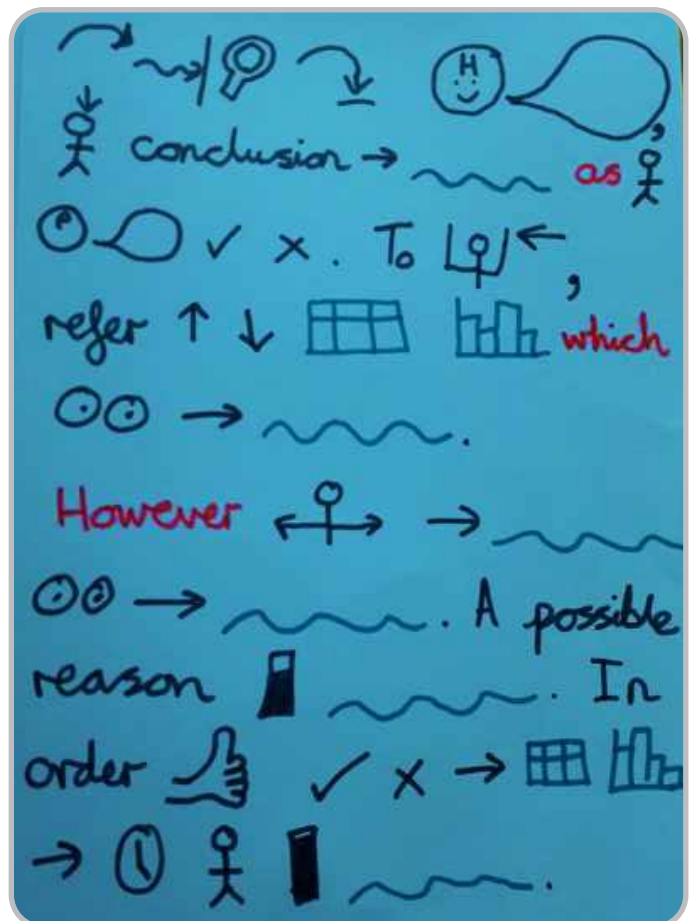 H
conclusion → as
✓ × . To ← ,
refer ↑ ↓ which
→ .
However →
→ . A possible
reason . In
order ✓ × →
→ .